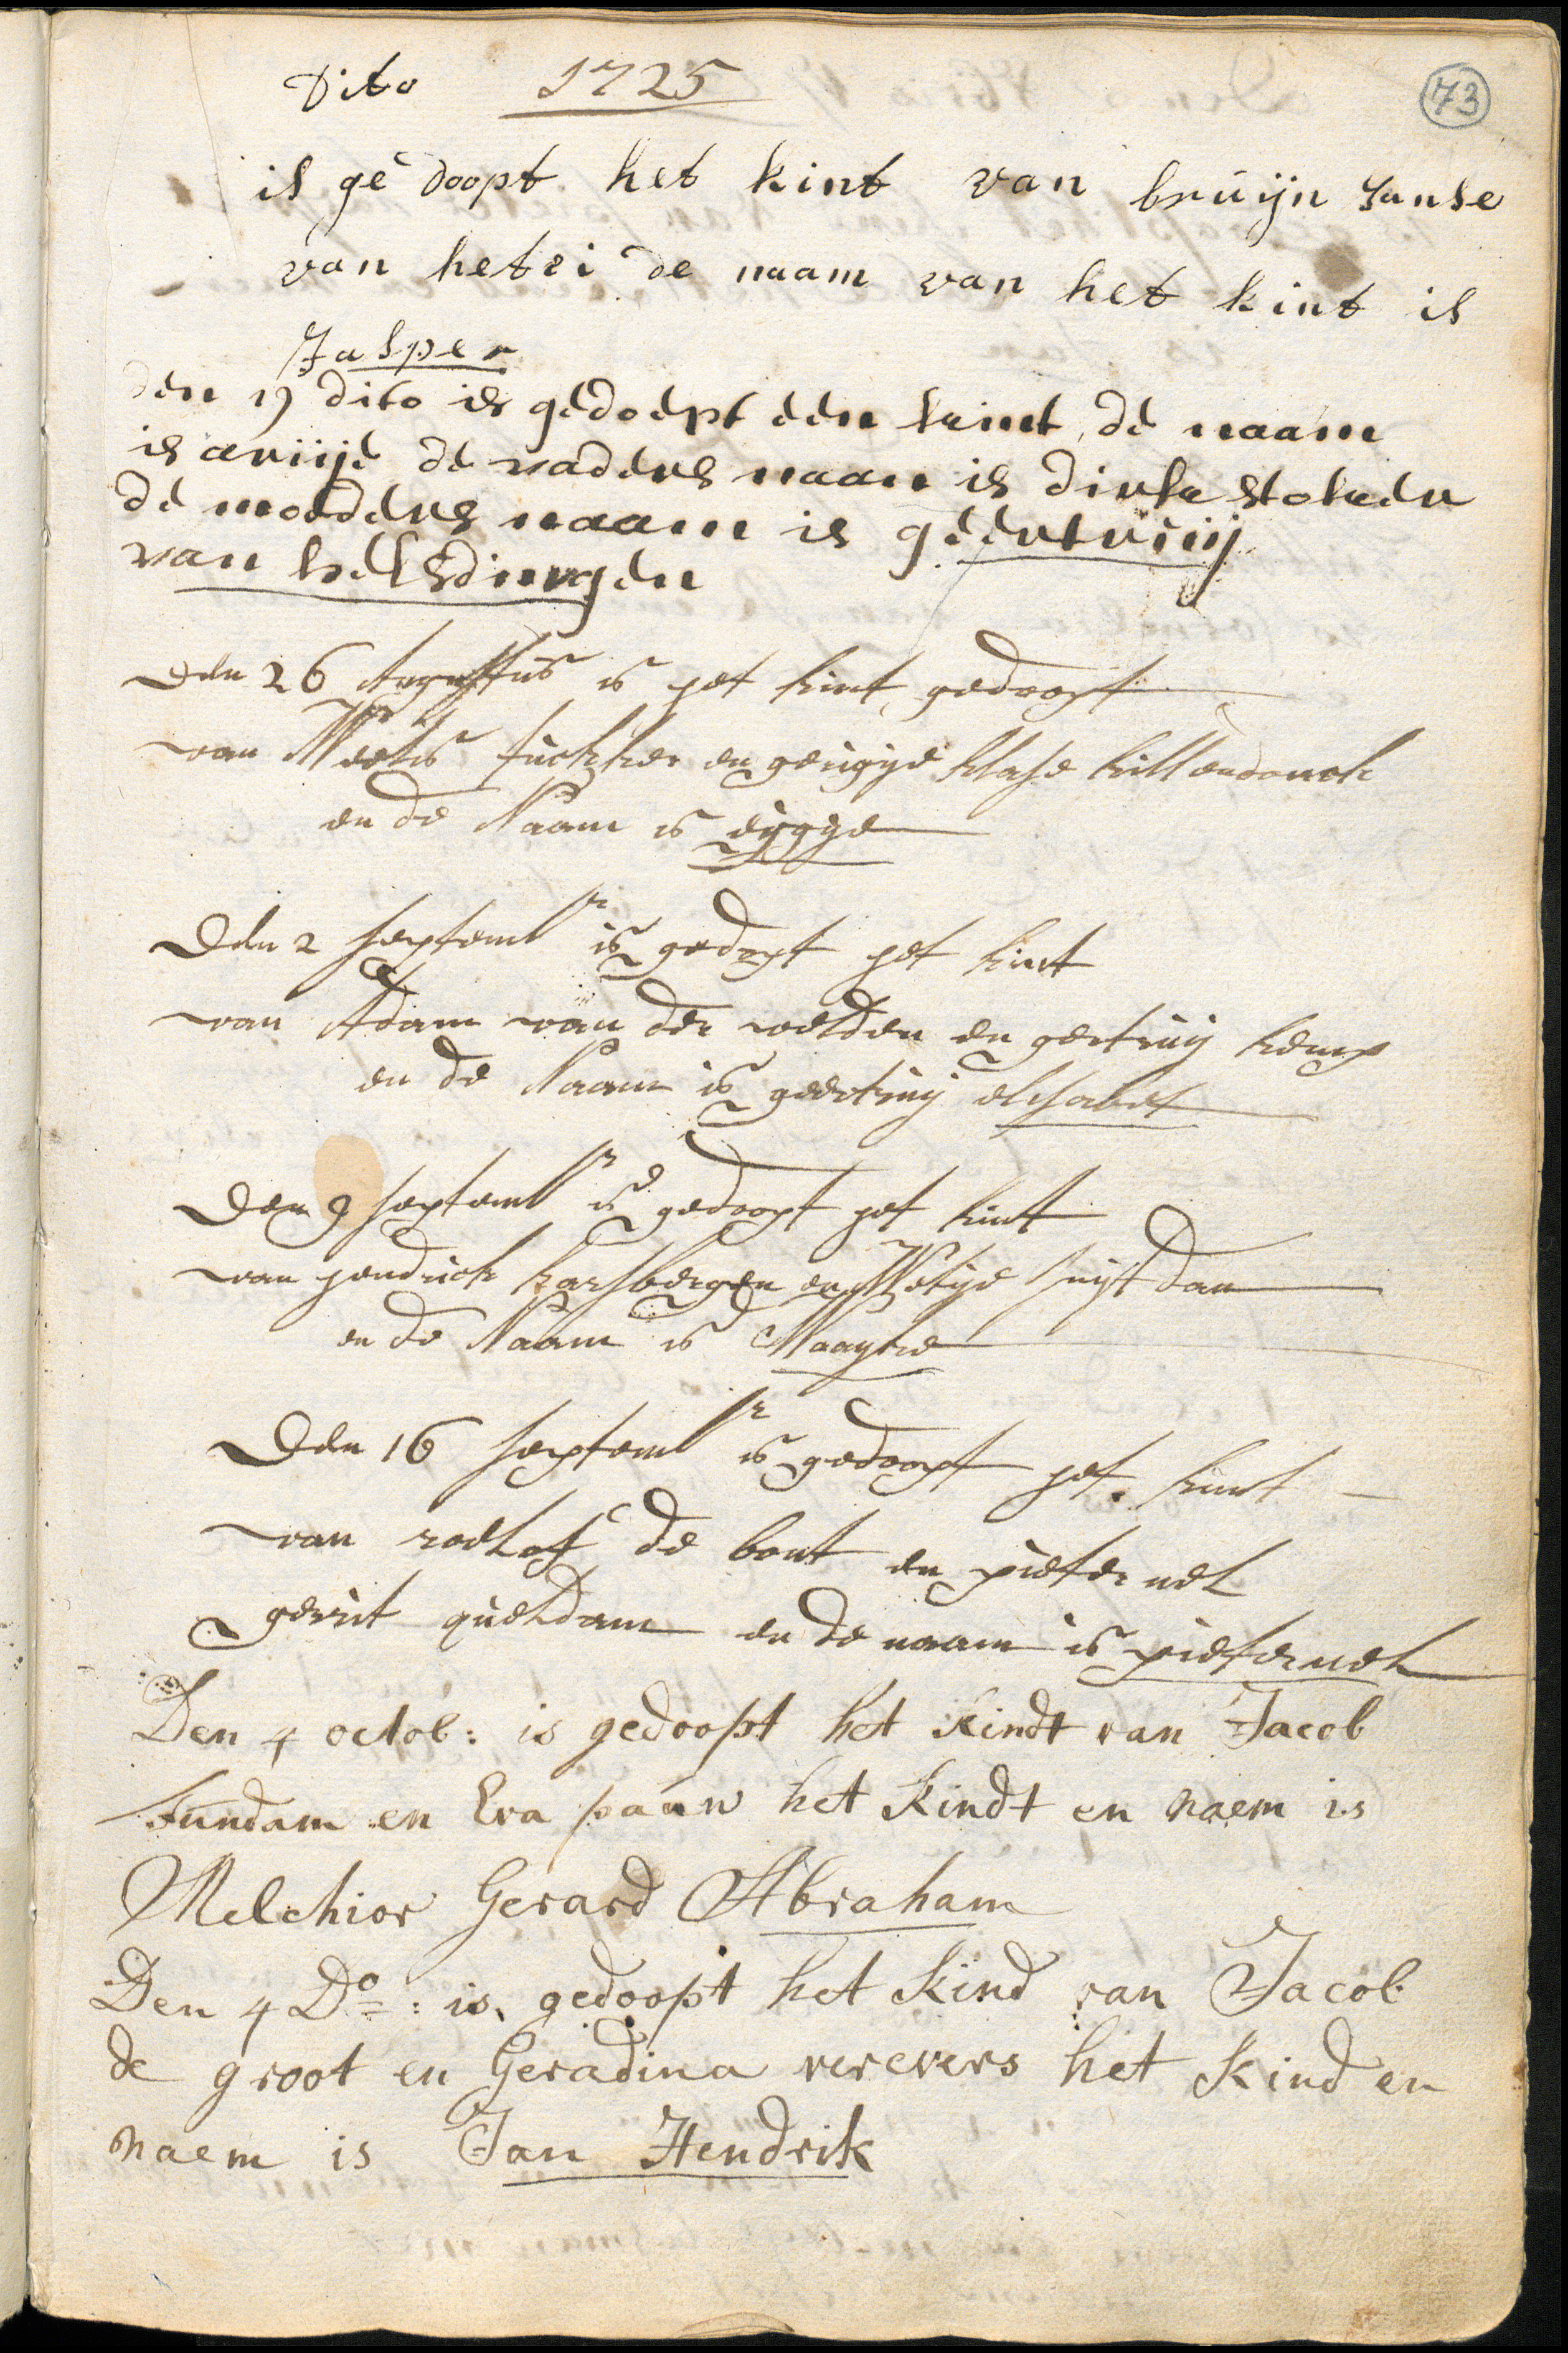 Dito 1725
73
is gedoopt het kint van bruijn Janse
van hetei de naam van het kint is
Jasper
den 19 dito is gedoept een kint de naam
is ariije de vaders naan is dirk stoker
de moeders naam is geertruij
van helsdingen
den 26 Augustus is het kint gedoopt
van en klase
en de Naam is eijgije
Den 2 septembr is gedopt het kint
van Adam van der velden en gertruij kemp
en de Naam is geertruij elisabet
Den 9 septembr is gedoopt het kint
van hendrick karsbergen en Metije
en de Naam is Maayke
Den 16 septembr is gedoopt het kint
van roelof de bont en pieternel
gerrit queldam en de naam is pieternel
Den 4 octob: is gedoopt het kindt van Jacob
fundam en Eva paauw het kindt en naem is
Melchior Gerard Abraham
Den 4 Do: is gedoopt het kind van Jacob
de groot en Geradina verevers het kind en
naem is Jan Hendrik